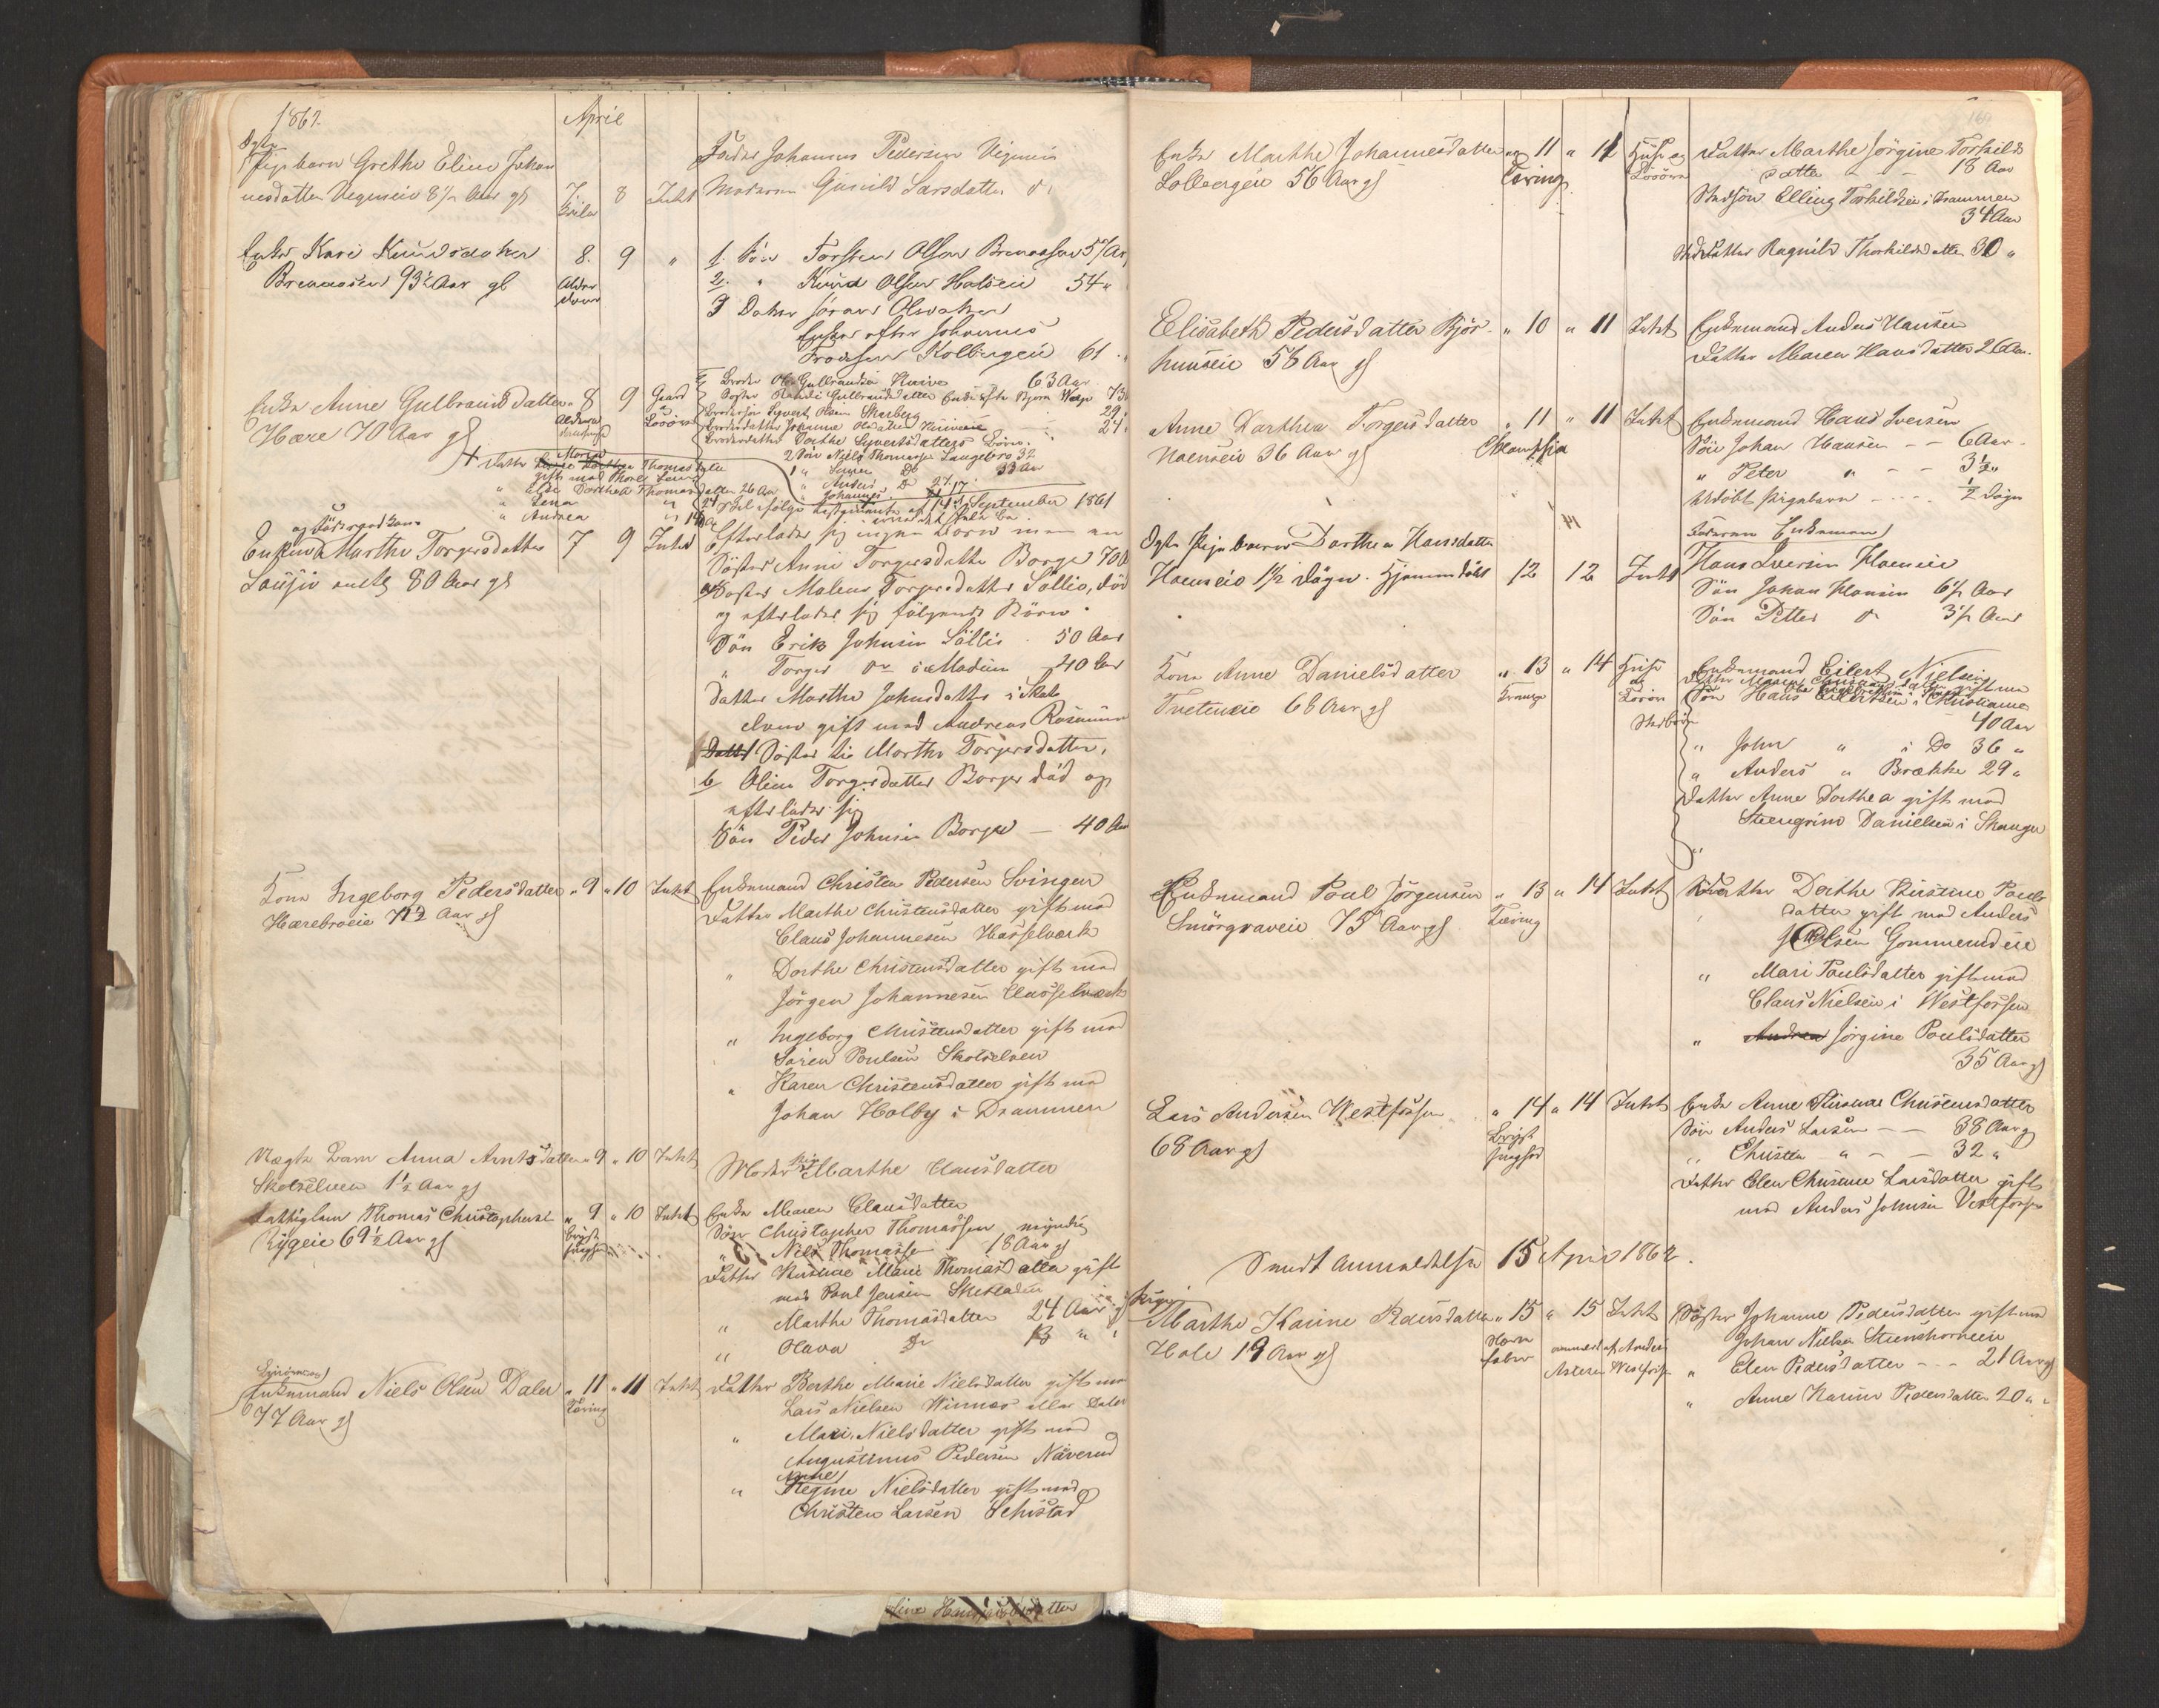 1862.
April
Ægte
Pigebarn Grethe Eline Johan
nesdatter Veguneie 8½ Aar gl
8 Intet
Fader Johannes Pedersen
Moderen Gunild Larsdatter do
Enke Kari Knudsdatter
Brenaasen 93½ Aar gl
8. 9 "
Alder
dom
1. Søn Torsten Olsen Brenaasen 57 Aar
2. " Knud Olsen Halseie 54 "
3 Datter Søran Olsdatter
Enke efter Johannes
Frodesen Kolbergeie 61
Enke Anne Gulbrandsdatter
Hære 70 Aar gl
" 8 9 Gaard
og
Løsøre
Broder Ole Gulbrandsen 63 Aar
Søster Randi Gulbrandsdatter Enke efter Bjørn 73
Brodersøn Syvert Olsen Skarberg 29
Broderdatter Johanne Olsdatter 24
Broderdatter Dorthe Syvertsdatters Børn.
2 Søn Niels Thomasen Langebro 32
1 " Søren Do 33 Aar
" Anders Do 27
" Johannes 17
Datter Maria Thomasdatter
gift med Thore
" Else Dorthea Thomasdatter 26 Aar
" Lena " 24
" Andrea " 14
Testamente af 14de September 1861
og Føderaadskone
Enken Marthe Torgersdatter
80 Aar gl
7 9 Intet
Efterlader sig ingen Børn men en
Søster Anne Torgersdatter Borge 70
a Søster Malene Torgersdatter Søllie, død
og efterlader sig følgende Børn.
Søn Erik Johnsen Søllie 50 Aar
" Torger do i Modum 40 Aar
Datter Marthe Johnsdatter i Skots
elven gift med Andreas
Søster til Marthe Torgersdatter,
b Oline Torgersdatter Borge død og
efterlader sig
Søn Peder Johnsen Borge — 40 Aar
Kone Ingeborg Pedersdatter
Hærebroeie 71½ Aar gl
" 9 " 10 Intet
Enkemand Christen Pedersen Svingen
Datter Marthe Christensdatter gift med
Claus Johannesen Hasselværk
" Dorthe Christensdatter gift med
Jørgen Johannesen Hasselværk
" Ingeborg Christensdatter gift med
Søren Poulsen Skotselven
" Karen Christensdatter gift med
Johan Holby i Drammen
Uægte Barn Anna Arntsdatter
Skotselven 1½ Aar gl
" 9 " 10 Intet
Moder Pige Marthe Hansdatter
Fattiglem Thomas Christophersen
Rygeie 69½ Aar gl
" 9 " 10 Intet
Bryst
syge
Enke Maren Clausdatter
Søn Christopher Thomassen myndig
" Niels Thomassen 18 Aar gl
Datter Kirstine Marie Thomasdatter gift
med Poul Jensen
" Marthe Thomasdatter 24 Aar gl
" Olava Do 13 " "
Enkemand Niels Olsen Daler
77 Aar gl
" 11 " 11 Intet
Tæring
Datter Berthe Marie Nielsdatter gift med
Lars Nielsen Winnæs eller Daler
" Mari Nielsdatter gift med
Augustinus Pedersen Nåverud
Anne
" Regine Nielsdatter gift med
Christen Larsen Schistad
Enke Marthe Johannesdatter
Lolbergeie 56 Aar gl
" 11 " 11 Huse og
Løsøre
Tæring
Datter Marthe Jørgine Torkilds
datter - - - 18 Aar
Stedsøn Elling Torkildsen i Drammen
34 Aar
Stedatter Ragnild Thorkildsdatter 30 "
Elisabeth Pedersdatter Bjør
nunseie 56 Aar gl
" 10 " 11 Intet
Enkemand Anders Hansen
Datter Maren Hansdatter 26 Aar.
Anne Dorthea Torgersdatter
Haenseie 36 Aar gl
" 11 " 11 Intet
Eklampsia
Enkemand Hans Iversen
Søn Johan Hansen - - 6 Aar
" Peter " - - 3½ "
Udøbt Pigebarn - - - ½ Døgn
Ægte Pigebarn Dorthea Hansdatter
Haenseie 1½ Døgn. Hjemmedøbt
12 12 Intet
Faderen Enkemand
Hans Iversen Haenseie
Søn Johan Hansen 6½ Aar
Søn Petter do 3½ Aar
Kone Anne Danielsdatter
Tveteneie 68 Aar gl
" 13 " 14 Huse
og
Løsøre
Enkemand Eilert Nielsen
Søn Hans Eilertsen i Christiania
Stedbørn
40 Aar
" John " i Do 36 "
" Anders " Brække 29 "
Datter Anne Dorthea gift med
Steengrim Danielsen i Skauger
Enkemand Poul Jørgensen
Smørgraveie 75 Aar gl
" 13 " 14 Intet
Tæring
Datter Dorthe Kirstine Pouls
datter gift med Anders
Olsen Gommerudeie
" Mari Poulsdatter gift med
Claus Nielsen i Westfossen
" Andrea Jørgine Poulsdatter
35 Aar gl
Lars Andersen Westfossen
68 Aar gl
" 14 " 14 Intet
Bryst
sygdom
Enke Anne Kirstine Christensdatter
Søn Anders Larsen - - 38 Aar gl
" Christen " - - 32 "
Datter Elen Christine Larsdatter gift
med Anders Johnsen Vestfossen
Sendt Anmeldelse 15 April 1862.
Pige
Marthe Karine Pedersdatter
Hole 19 Aar gl
" 15 " 15 Intet
Nerve
feber
anmeldt af Anders
Westfossen
Søster Johanne Pedersdatter gift med
Johan Nielsen Steenshorneie
" Elen Pedersdatter - - - 21 Aar gl
" Anne Karine Pedersdatter 20 " "